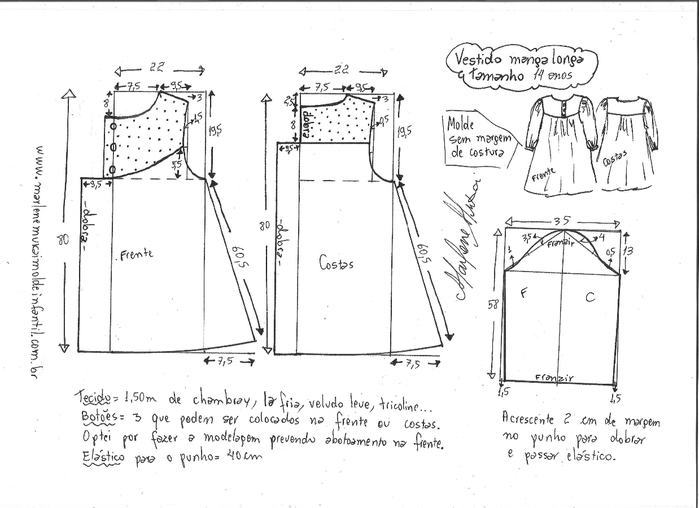 Vestido manga longa
tamanho 14 anos
22
7,5
9,5
3
8
1,5
19,5
5,5
3,5
80
-dobra-
Frente
60,5
7,5
22
7,5
9,5
3
8
dobra
19,5
9,5
80
-dobra-
Costas
60,5
7,5
Molde
sem margem
de costura
Frente
Costas
Marlene Mukai
35
3,5
Franzir
4
1
0,5
13
58
F
C
Franzir
1,5
1,5
www.marlenemukaimoldeinfantil.com.br
Tecido = 1,50m de chambray, lã fria, veludo leve, tricoline...
Botões = 3 que podem ser colocados na frente ou costas.
Optei por fazer a modelagem prevendo abotoamento na frente.
Elástico para o punho = 40cm
Acrescente 2 cm de margem
no punho para dobrar
e passar elástico.